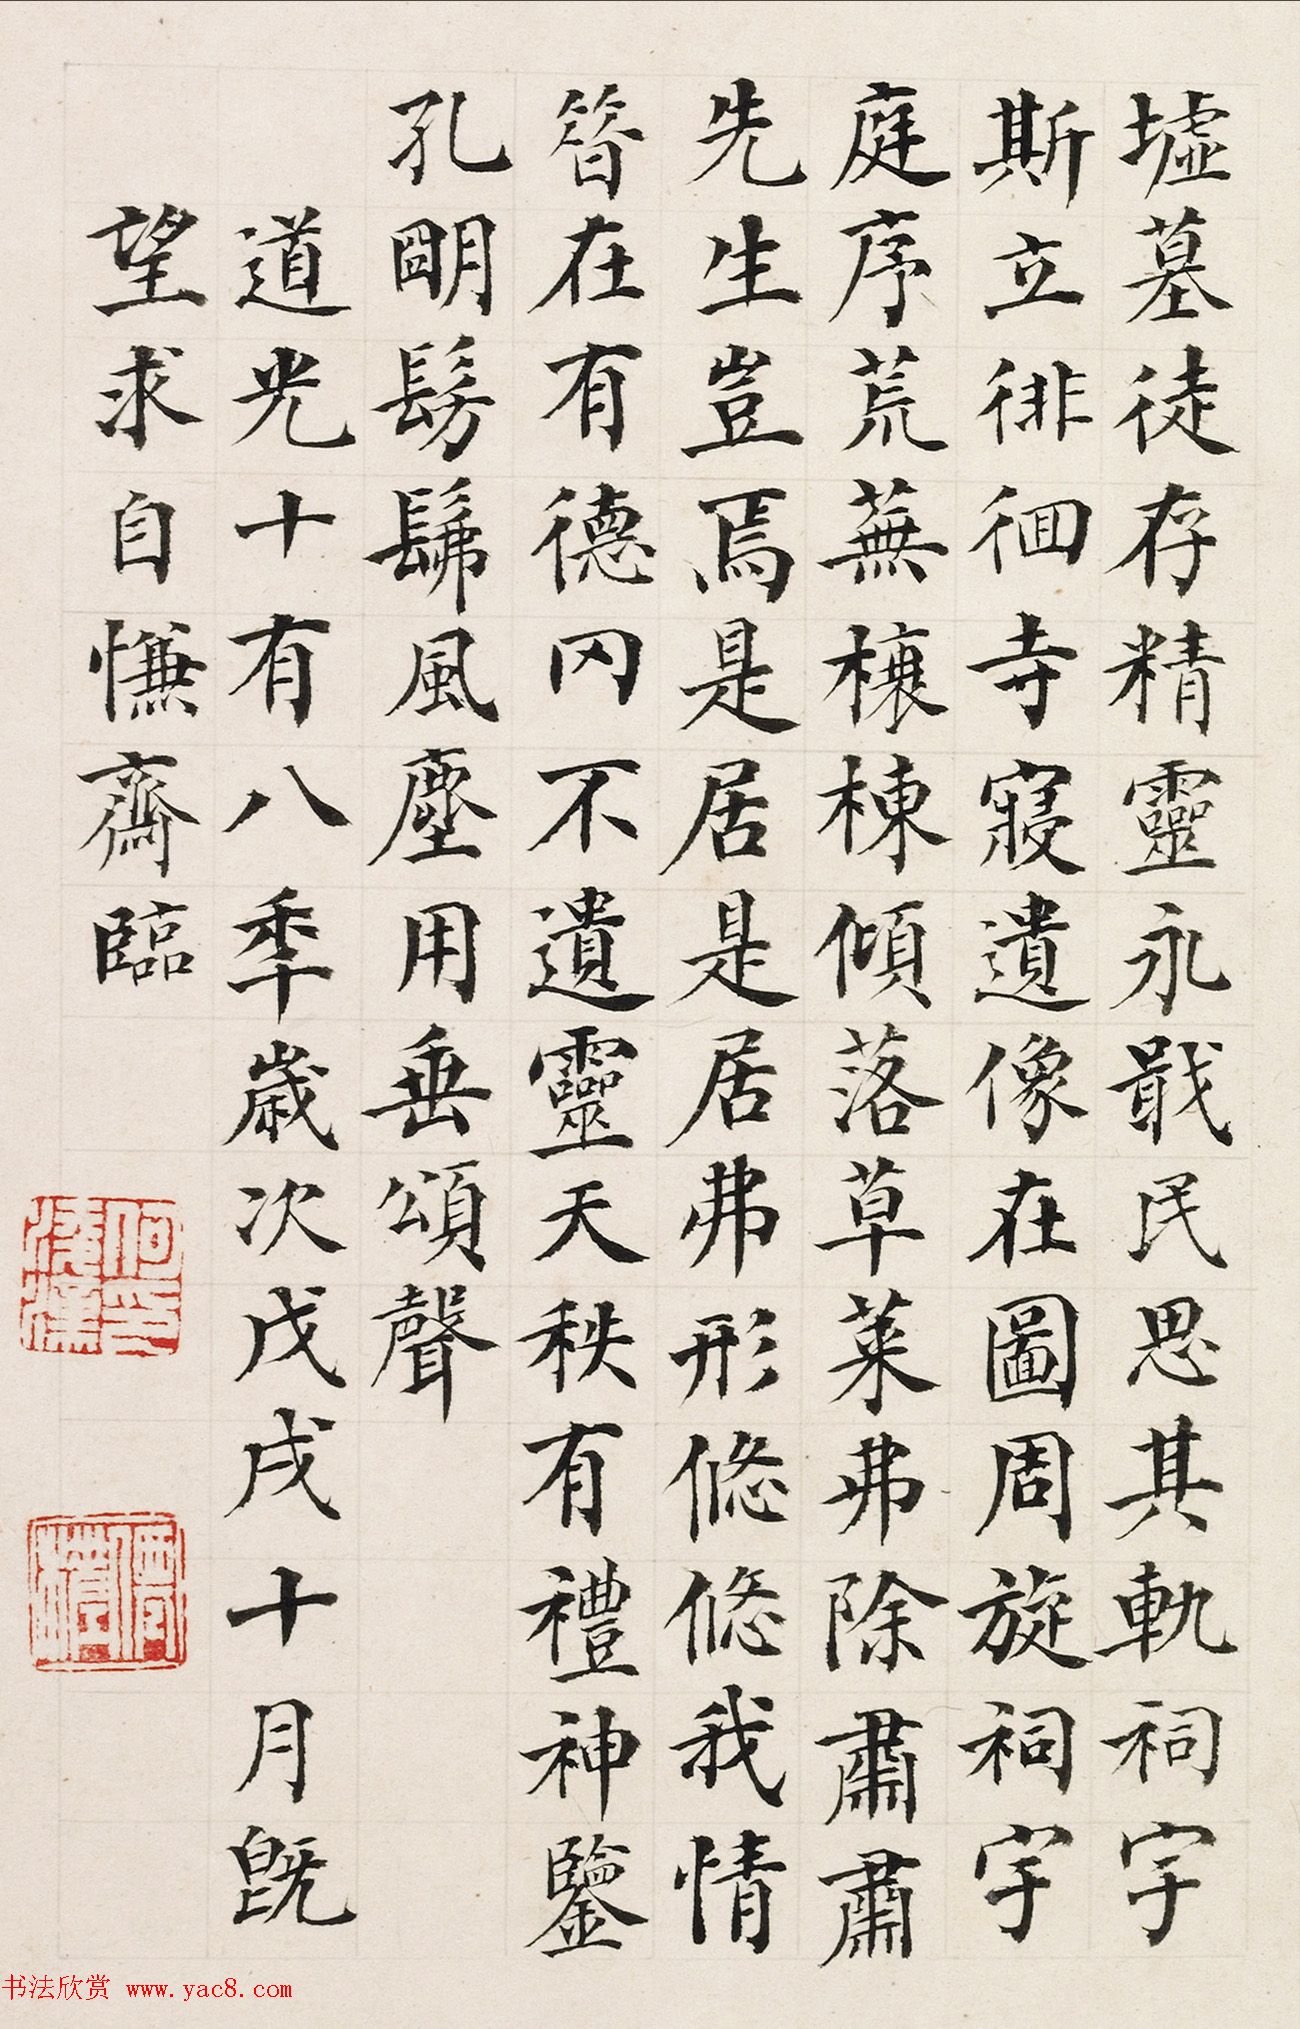 墟墓徒存精靈永戢民思其軌祠宇
斯立徘徊寺寢遺像在圖周旋祠宇
庭序荒蕪榱棟傾落草萊弗除肅肅
先生豈焉是居是居弗形悠悠我情
昔在有德罔不遺靈天秩有禮神鑒
孔明髣髴風塵用垂頌聲
道光十有八年歲次戊戌十月既
望求自慊齋臨
书法欣赏 www.yac8.com